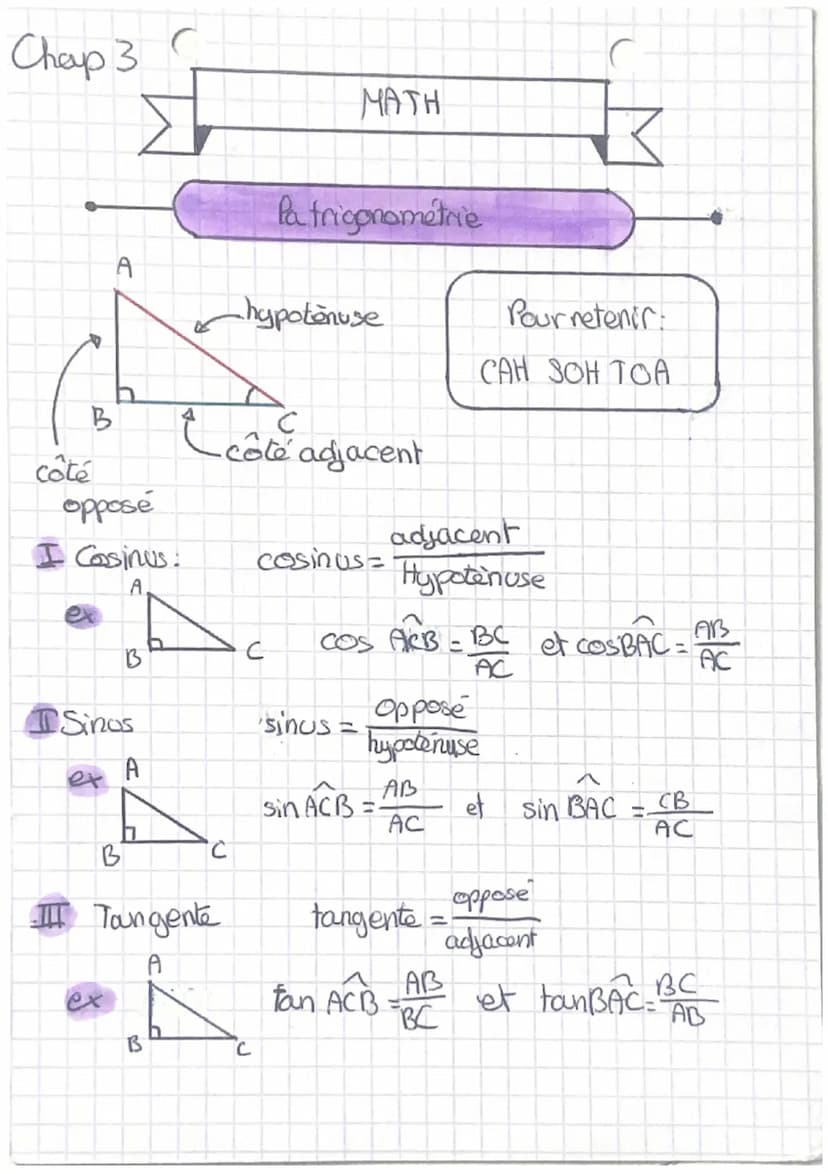 Chap 3
MATH
La trigonométrie
A
hypoténuse
Pour retenir:
CAH SOH TOA
B
C
côté adjacent
côté
opposé
I Cosinus: cosinus = adjacent / Hypoténuse
A
ex
B
C
cos ACB = BC / AC et cos BAC = AB / AC
II Sinus sinus = opposé / hypoténuse
ex
A
B
C
sin ACB = AB / AC et sin BAC = CB / AC
III Tangente tangente = opposé / adjacent
ex
A
B
C
tan ACB = AB / BC et tan BAC = BC / AB